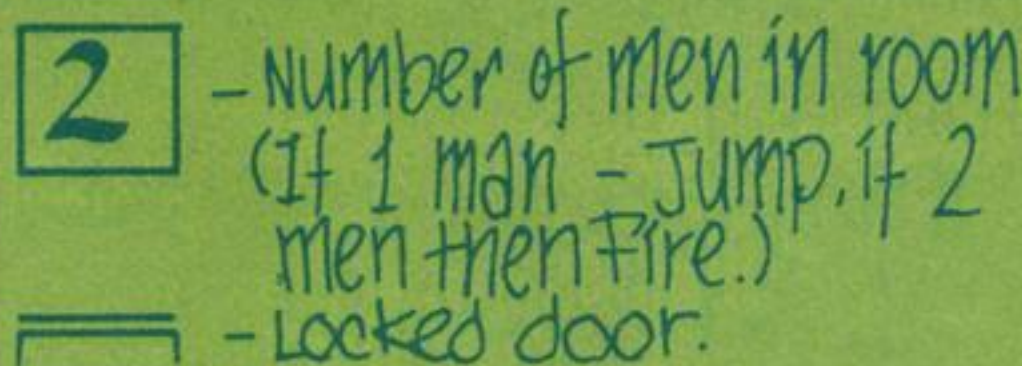 2 - Number of men in room
(If 1 man - Jump, if 2
men then Fire.)
- Locked door.